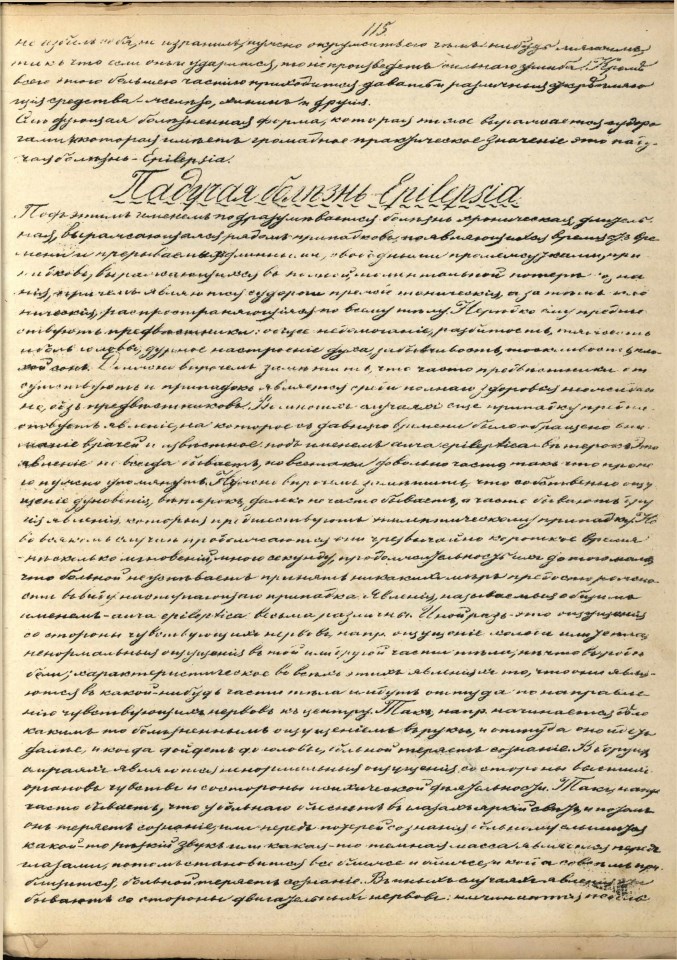 115.
не избилъ себя, не изранилъ, нужно окружить его чѣмъ-нибудь мягкимъ,
такъ что если онъ и ударится, то не произведетъ сильнаго ушиба. Кромѣ
всего этого большею частію приходится давать и различныя укрѣпляю
щія средства: желѣзо, хининъ и другія.
Слѣдующая болѣзненная форма, которая тоже выражается судоро
гами и которая имѣетъ громадное практическое значеніе это паду
чая болѣзнь - Epilepsia.
Падучая болѣзнь Epilepsia.
Подъ этимъ именемъ подразумѣвается болѣзнь хроническая, длитель
ная, выражающаяся рядомъ припадковъ, появляющихся время отъ вре
мени и прерываемыхъ длинными, свободными промежутками, при
падковъ, выражающихся въ полной моментальной потерѣ созна
нія, причемъ являются судороги прежде тоническія, а затѣмъ кло
ническія, распространяющіяся по всему тѣлу. Нерѣдко ему предше
ствуютъ предвѣстники: общее недомоганіе, разбитость, тяжесть
и боль головы, дурное настроеніе духа, забывчивость, тоскливость, пло
хой сонъ. Должно впрочемъ замѣтить, что часто предвѣстники от
сутствуютъ и припадокъ является среди полнаго здоровья неожидан
но, безъ предвѣстниковъ. Во многихъ случаяхъ еще припадку предше
ствуетъ явленіе, на которое съ давняго времени было обращено вни
маніе врачей и извѣстное подъ именемъ aura epileptica - вѣтерокъ. Это
явленіе не всегда бываетъ, но все-таки довольно часто, такъ что про не
го нужно упомянуть. Нужно впрочемъ замѣтить, что собственно ощу
щеніе дуновенія, вѣтерокъ, далеко не часто бываетъ, а часто бываютъ дру
гія явленія, которыя предшествуютъ эпилептическому припадку. Но
во всякомъ случаѣ продолжаются они чрезвычайно короткое время
- нѣсколько мгновеній, много секунду, продолжительность ихъ до того мала,
что больной не успѣваетъ принять никакихъ мѣръ предосторожно
сти въ виду наступающаго припадка. Явленія, называемыя общимъ
именемъ - aura epileptica весьма различны. Иной разъ - это ощущенія
со стороны чувствующихъ нервовъ, напр. ощущеніе холода или тепла,
ненормальныя ощущенія въ той или другой части тѣла, нѣчто въ родѣ
боли; характеристическое во всѣхъ этихъ явленіяхъ то, что они явля
ются въ какой-нибудь части тѣла и идутъ оттуда по направле
нію чувствующихъ нервовъ къ центру. Такъ, напр. начинается дѣло
какимъ-то болѣзненнымъ ощущеніемъ въ рукѣ, и оттуда оно идетъ
далѣе, и когда дойдетъ до головы, больной теряетъ сознаніе. Въ другихъ
случаяхъ являются ненормальныя ощущенія со стороны высшихъ
органовъ чувствъ и со стороны психической дѣятельности. Такъ, напр.
часто бываетъ, что у больнаго блеснетъ въ глазахъ яркій свѣтъ, и потомъ
онъ теряетъ сознаніе, или передъ потерей сознанія больному слышится
какой-то рѣзкій звукъ или какая-то темная масса является передъ
глазами, потомъ становится все ближе и ближе, и когда совсѣмъ при
близится, больной теряетъ сознаніе. Въ иныхъ случаяхъ явленія
бываютъ со стороны двигательныхъ нервовъ: начинается